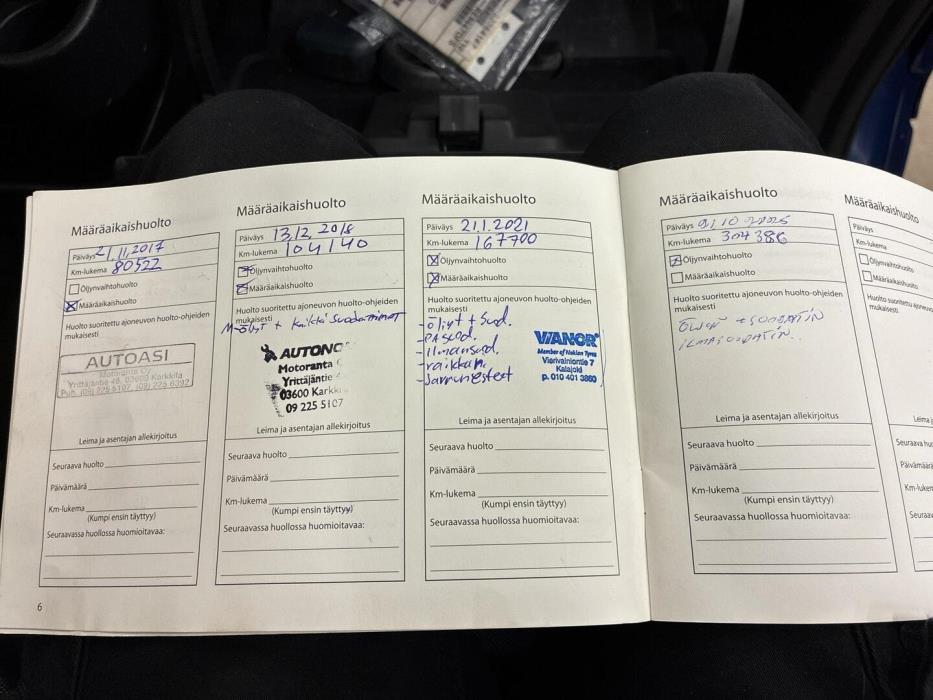 Määräaikaishuolto
Päiväys 21.11.2017
Km-lukema 80522
Öljynvaihtohuolto
Määräaikaishuolto
Huolto suoritettu ajoneuvon huolto-ohjeiden
mukaisesti
AUTOASI
Motoranta Oy
Yrittäjäntie 48, 03600 Karkkila
Puh. (09) 225 5107, (09) 225 6392
Leima ja asentajan allekirjoitus
Seuraava huolto
Päivämäärä
Km-lukema
(Kumpi ensin täyttyy)
Seuraavassa huollossa huomioitavaa:
6
Määräaikaishuolto
Päiväys 13.12.2018
Km-lukema 104140
Öljynvaihtohuolto
Määräaikaishuolto
Huolto suoritettu ajoneuvon huolto-ohjeiden
mukaisesti
M-öljyt + kaikki suodattimet
AUTONO
Motoranta
Yrittäjäntie
03600 Karkki
09 225 5107
Leima ja asentajan allekirjoitus
Seuraava huolto
Päivämäärä
Km-lukema
(Kumpi ensin täyttyy)
Seuraavassa huollossa huomioitavaa:
Määräaikaishuolto
Päiväys 21.1.2021
Km-lukema 167700
Öljynvaihtohuolto
Määräaikaishuolto
Huolto suoritettu ajoneuvon huolto-ohjeiden
mukaisesti
-öljyt + suod.
-PAsuod.
-ilmansuod.
-raikkan.
-Jarrunesteet
VIANOR
Member of Nokian Tyres
Vierivainiontie 7
Kalajoki
p. 010 401 3860
Leima ja asentajan allekirjoitus
Seuraava huolto
Päivämäärä
Km-lukema
(Kumpi ensin täyttyy)
Seuraavassa huollossa huomioitavaa:
Määräaikaishuolto
Päiväys 9/10 2025
Km-lukema 307386
Öljynvaihtohuolto
Määräaikaishuolto
Huolto suoritettu ajoneuvon huolto-ohjeiden
mukaisesti
Leima ja asentajan allekirjoitus
Seuraava huolto
Päivämäärä
Km-lukema
(Kumpi ensin täyttyy)
Seuraavassa huollossa huomioitavaa:
Määräaikaishuolto
Päiväys
Km-lukema
Öljynvaihtohuolto
Määräaikaishuolto
Huolto suoritettu ajoneuv
mukaisesti
Leima j
Seuraava huo
Päivämäärä
Km-luken
Seuraav